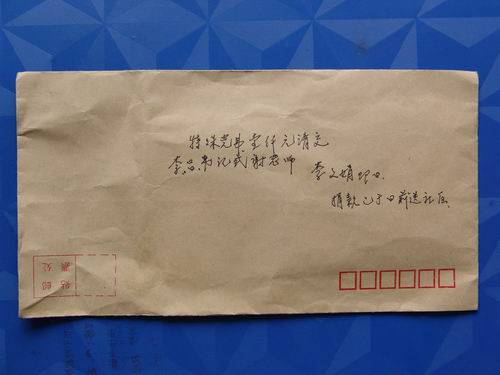 特殊党费壹仟元请交
李昌书记或谢老师
李文娟 即日
捐款已于日前送社区
贴邮
票处